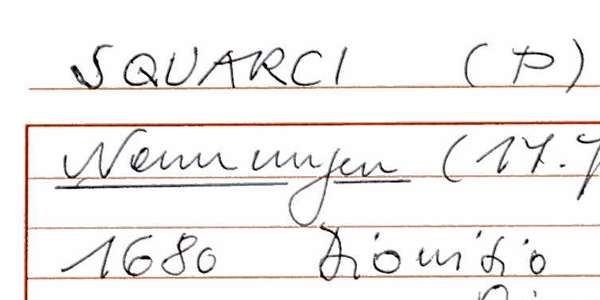 SQUARCI (P)
Nennungen (17.
1680 Dionisio